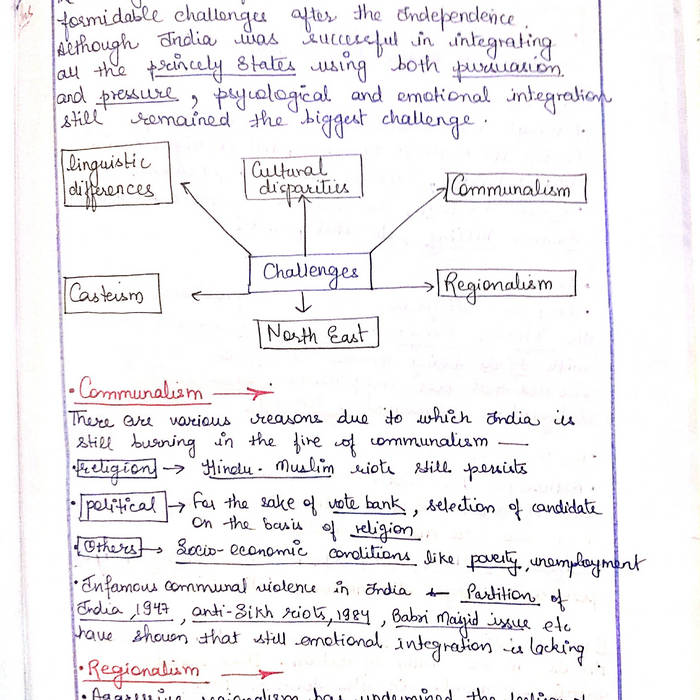 formidable challenges after the Independence.
Although India was successful in integrating
all the princely States using both pursuasion
and pressure, psycological and emotional integration
still remained the biggest challenge.
linguistic
differences
Cultural
disparities
Communalism
Challenges
Casteism
Regionalism
North East
• Communalism →
There are various reasons due to which India is
still burning in the fire of communalism —
• religion → Hindu-Muslim riots still persists
• political → For the sake of vote bank, selection of candidate
on the basis of religion
• Others → Socio-economic conditions like poverty, unemployment
• Infamous communal violence in India ← Partition of
India, 1947, anti-Sikh riots, 1984, Babri Masjid issue etc
have shown that still emotional integration is lacking
• Regionalism →
• Aggressive regionalism has undermined the feeling of